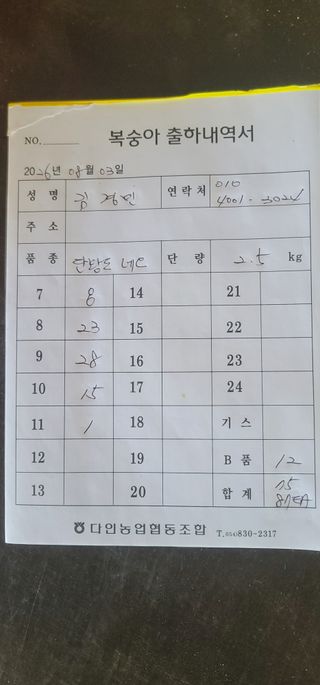 NO.
복숭아 출하내역서
2026년 08월 03일
성 명 김경민 연락처 010 4001-3024
주 소
품 종 단량 2.5 kg
7 8 14 21
8 23 15 22
9 28 16 23
10 15 17 24
11 1 18 기 스
12 19 B 품 12
13 20 합 계 75
다인농업협동조합 T.054)830-2317